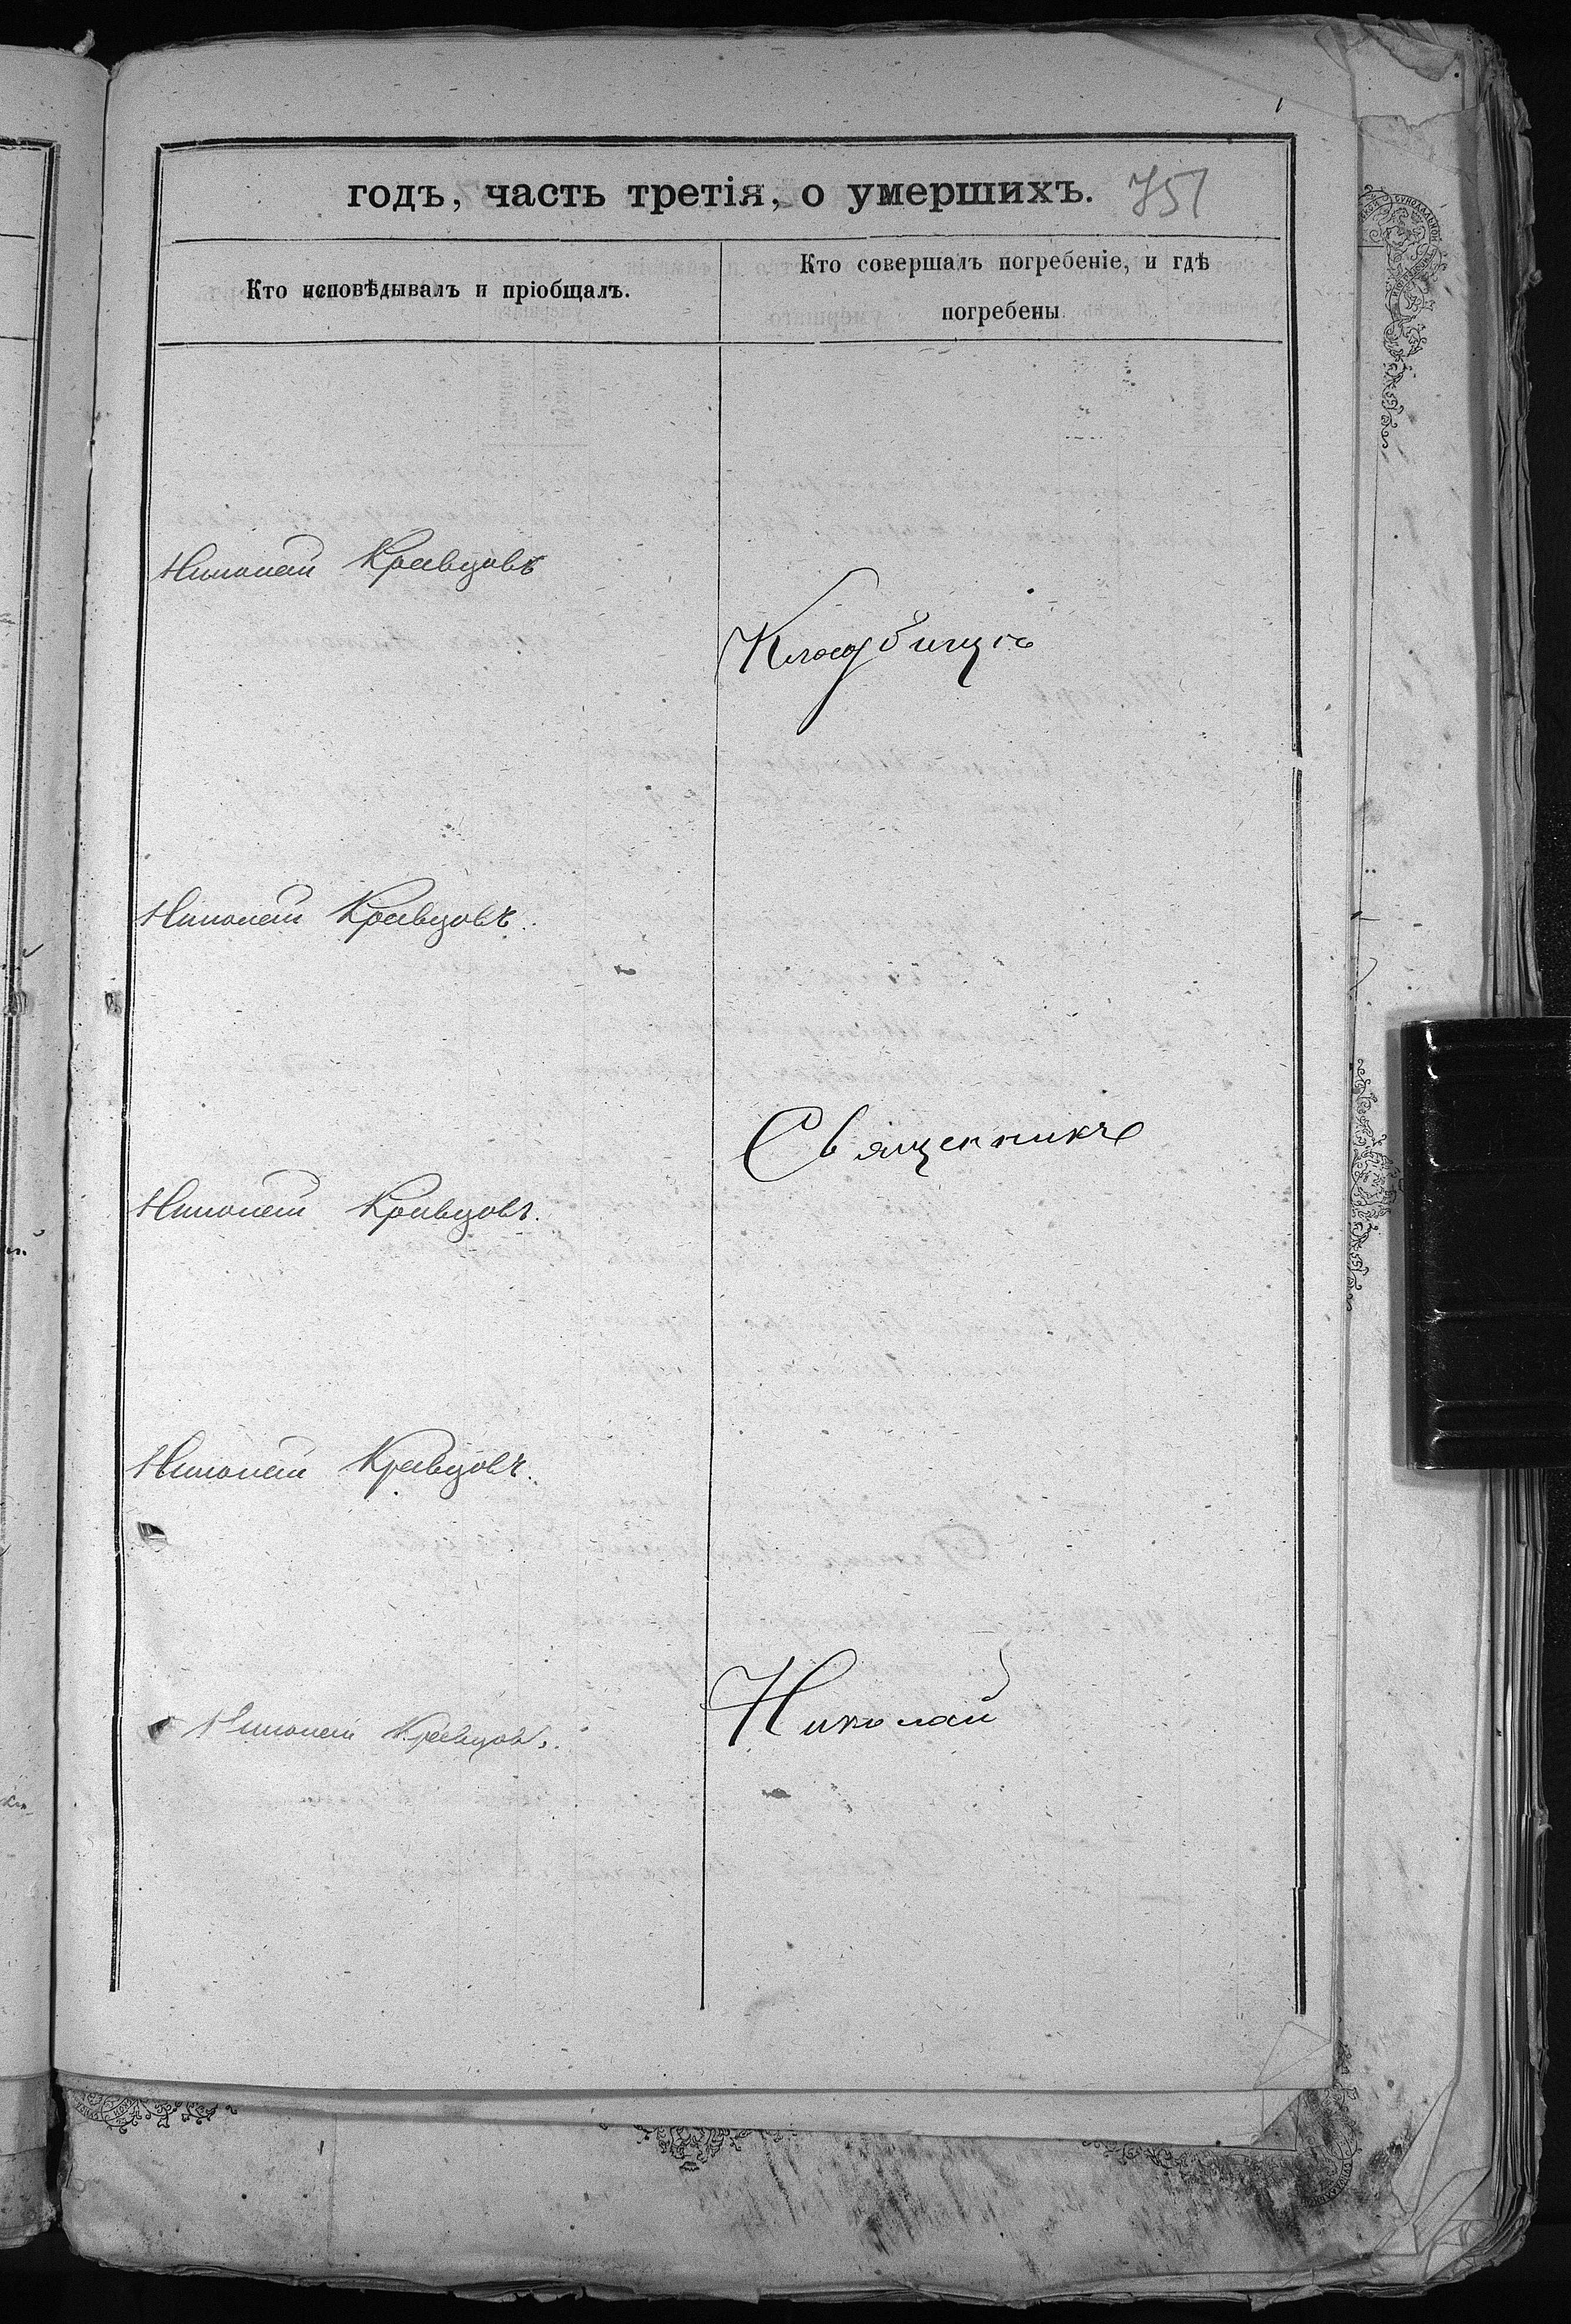 годъ, часть третія, о умершихъ. 751
Кто исповѣдывалъ и пріобщалъ.
Кто совершалъ погребеніе, и гдѣ
погребены
Николай Кравцовъ
Кладбищѣ
Николай Кравцовъ.
Священникъ
Николай Кравцовъ.
Николай Кравцовъ.
Николай Кравцовъ.
Николай